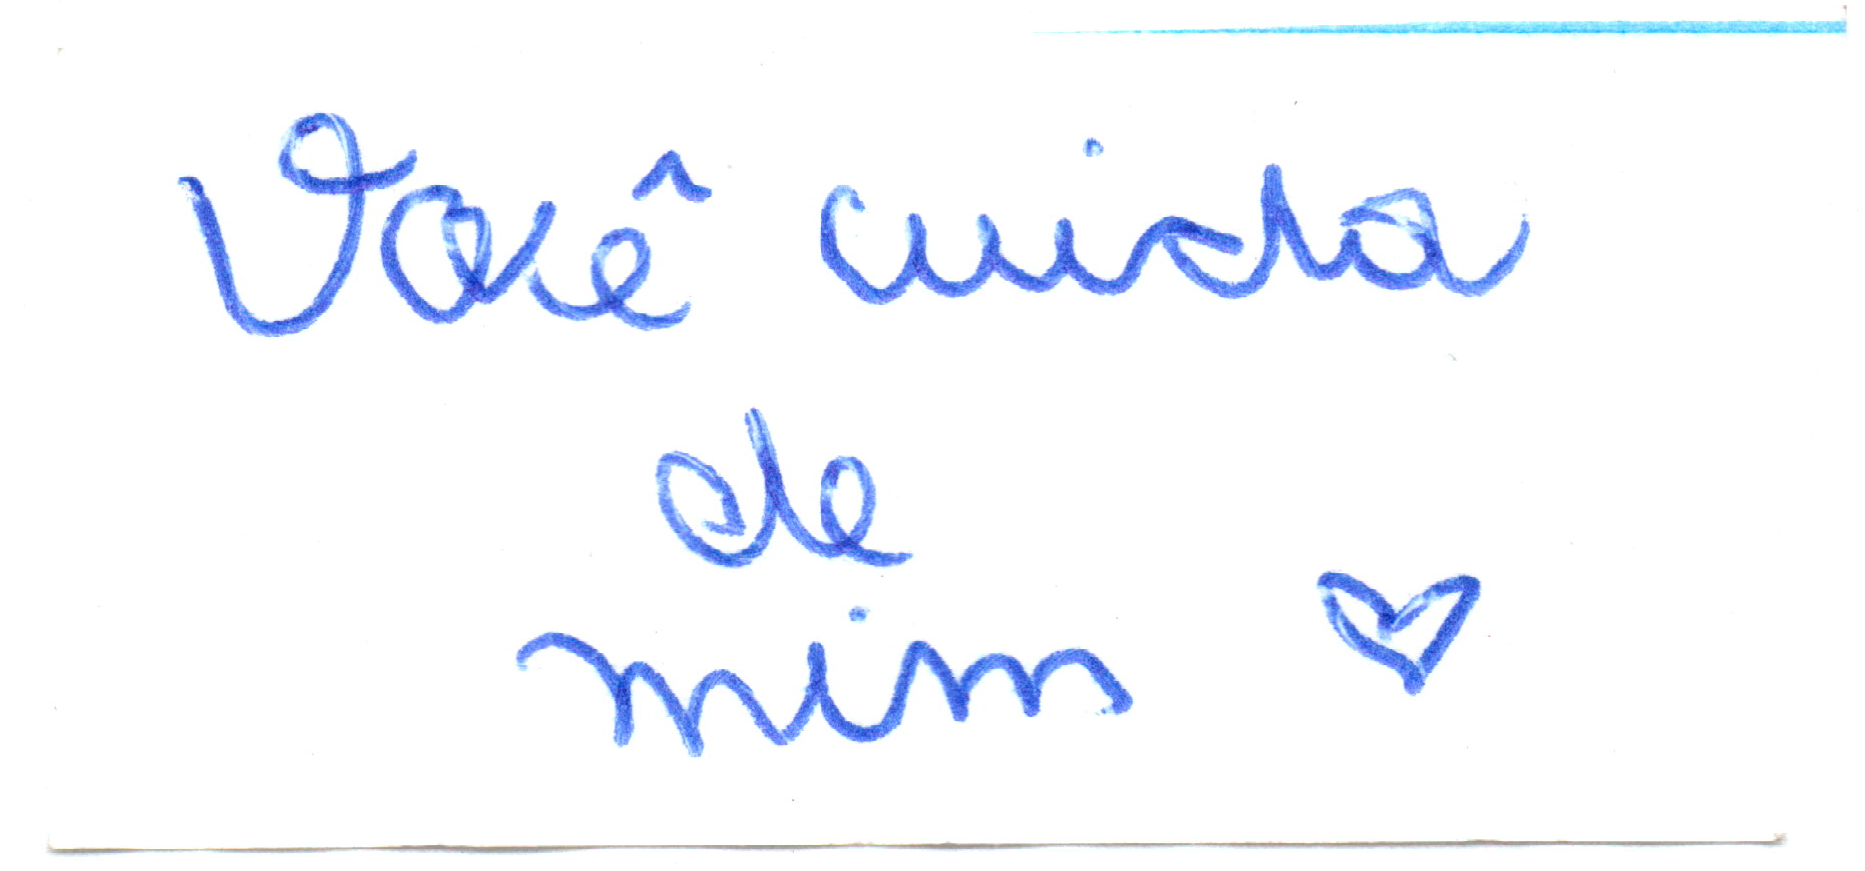 Você cuida
de
mim ♡